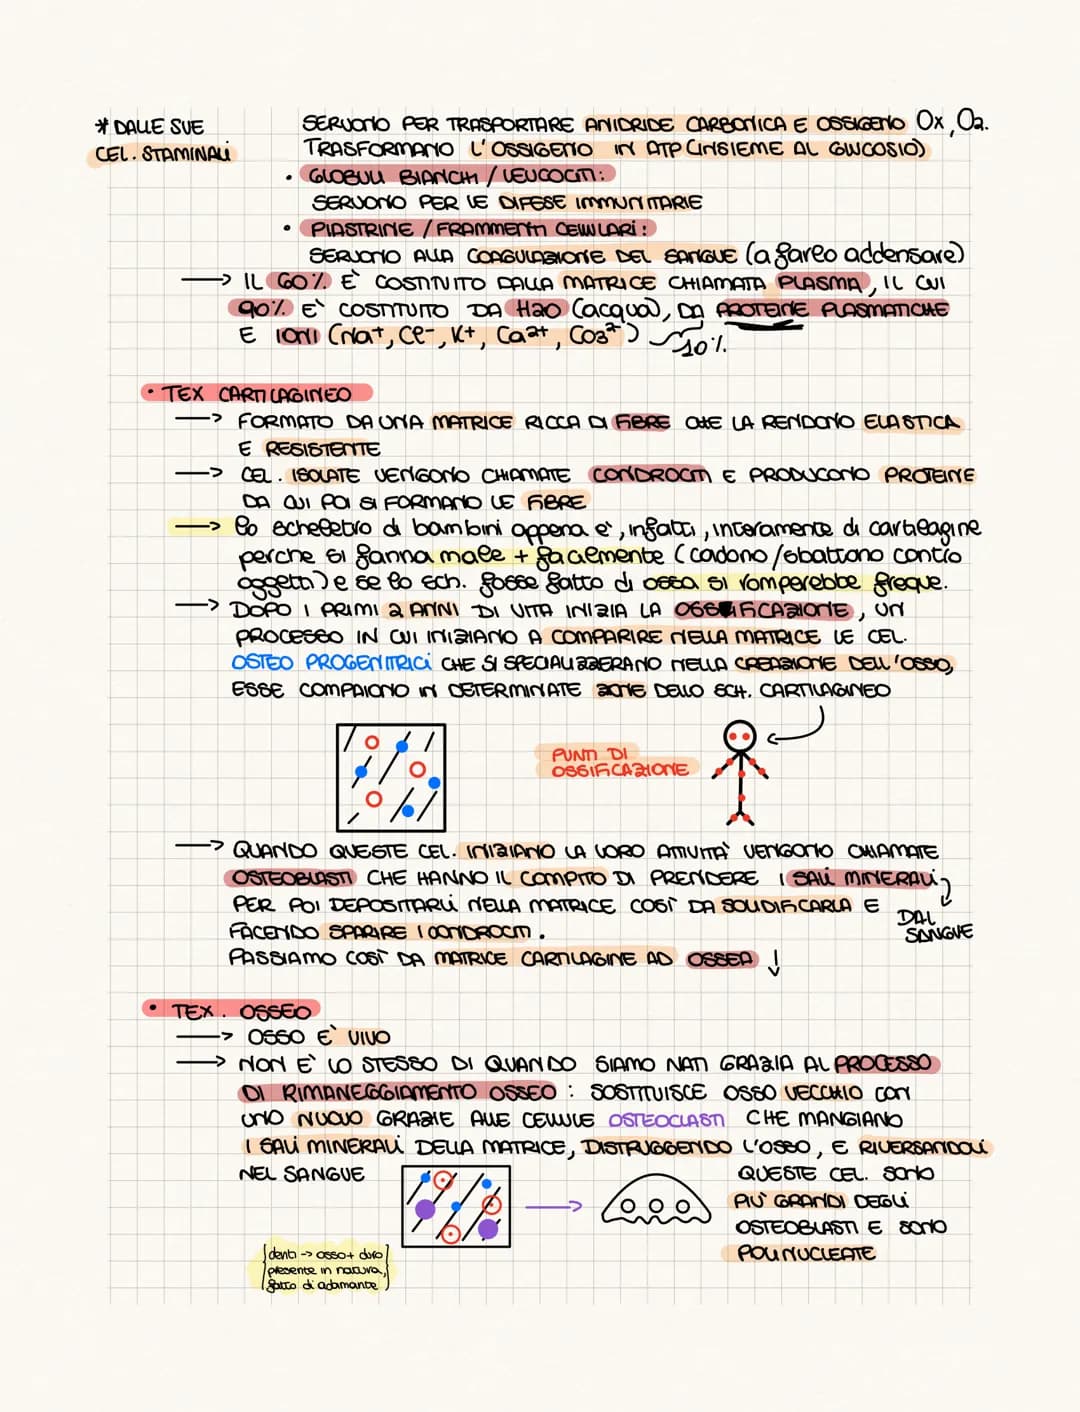 * DALLE SUE
CEL. STAMINALI
SERVONO PER TRASPORTARE ANIDRIDE CARBONICA E OSSIGENO Ox, O2.
TRASFORMANO L'OSSIGENO IN ATP (INSIEME AL GLUCOSIO)
• GLOBULI BIANCHI / LEUCOCITI:
SERVONO PER LE DIFESE IMMUNITARIE
• PIASTRINE / FRAMMENTI CELLULARI:
SERVONO ALLA COAGULAZIONE DEL SANGUE (a farlo addensare)
→ IL 60% E' COSTITUITO DALLA MATRICE CHIAMATA PLASMA, IL CUI
90% E' COSTITUITO DA H2O (acqua), DA PROTEINE PLASMATICHE
E IONI (Na+, Cl-, K+, Ca2+, CO3²-) 10%
• TEX CARTILAGINEO
→ FORMATO DA UNA MATRICE RICCA DI FIBRE CHE LA RENDONO ELASTICA
E RESISTENTE
→ CEL. ISOLATE VENGONO CHIAMATE CONDROCITI E PRODUCONO PROTEINE
DA CUI POI SI FORMANO LE FIBRE
→ lo scheletro di bambini appena e', infatti, interamente di cartilagine
perche si fanna male + facilmente (cadono/sbattono contro
oggetti) e se lo sch. fosse fatto di ossa si romperebbe freque.
→ DOPO I PRIMI 2 ANNI DI VITA INIZIA LA OSSIFICAZIONE, UN
PROCESSO IN CUI INIZIANO A COMPARIRE NELLA MATRICE LE CEL.
OSTEO PROGENITRICI CHE SI SPECIALIZZERANO NELLA CREAZIONE DELL'OSSO,
ESSE COMPAIONO IN DETERMINATE ZONE DELLO SCH. CARTILAGINEO
PUNTI DI
OSSIFICAZIONE
→ QUANDO QUESTE CEL. INIZIANO LA LORO ATTIVITA' VENGONO CHIAMATE
OSTEOBLASTI CHE HANNO IL COMPITO DI PRENDERE I SALI MINERALI
PER POI DEPOSITARLI NELLA MATRICE COSÌ DA SOLIDIFICARLA E
DAL
SANGUE
FACENDO SPARIRE I CONDROCITI.
PASSIAMO COSÌ DA MATRICE CARTILAGINE AD OSSEA ↓
• TEX. OSSEO
→ OSSO E' VIVO
→ NON E' LO STESSO DI QUANDO SIAMO NATI GRAZIA AL PROCESSO
DI RIMANEGGIAMENTO OSSEO: SOSTITUISCE OSSO VECCHIO CON
UNO NUOVO GRAZIE ALLE CELLULE OSTEOCLASTI CHE MANGIANO
I SALI MINERALI DELLA MATRICE, DISTRUGGENDO L'OSSO, E RIVERSANDOLI
NEL SANGUE
QUESTE CEL. SONO
PIÙ GRANDI DEGLI
OSTEOBLASTI E SONO
POLINUCLEATE
denti → osso + duro
presente in natura,
fatto di adamante